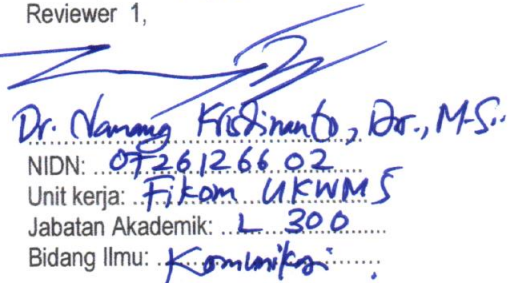 Reviewer 1,
Dr. Nanang Krisdinanto, Drs., M.Si.
NIDN: 0726126602
Unit kerja: Fikom UKWMS
Jabatan Akademik: L 300
Bidang Ilmu: Komunikasi